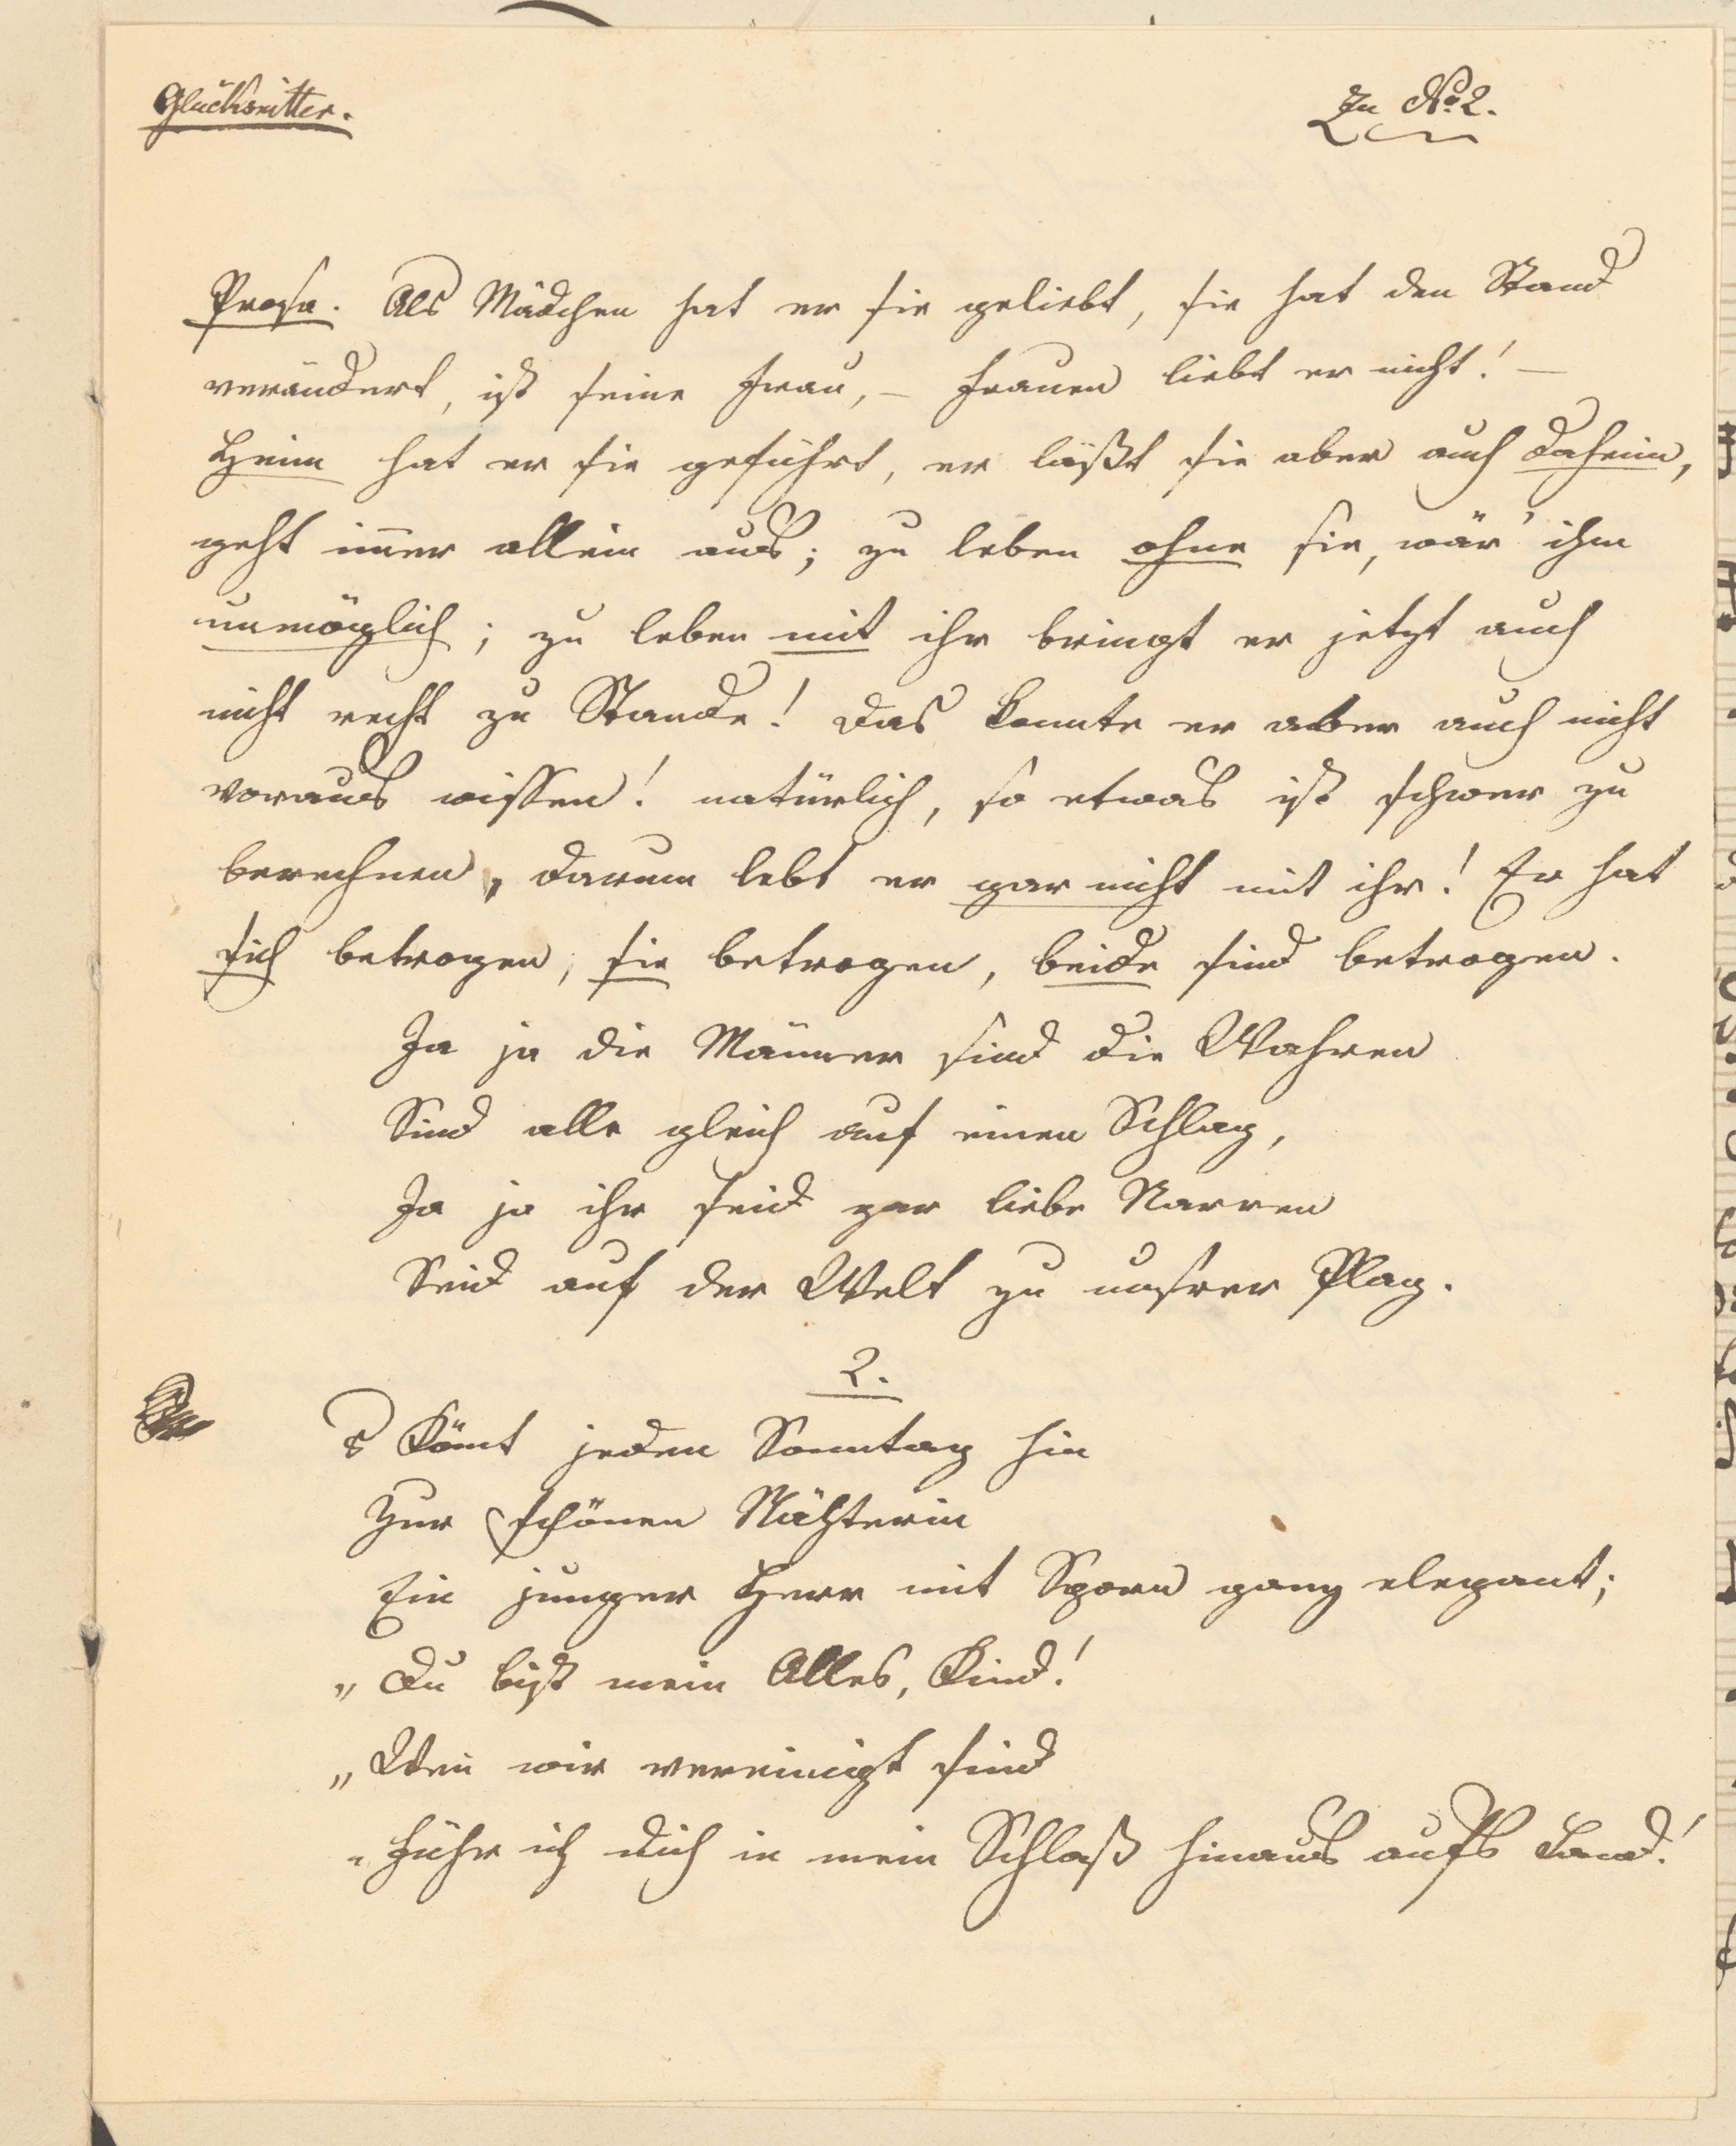 Glücksritter.
Zu No 2.
Prosa. Als Mädchen hat er sie geliebt, sie hat den Stand
verändert, ist seine Frau, – Frauen liebt er nicht! –
Heim hat er sie geführt, er läßt sie aber auch daheim,
geht im̅er allein aus; zu leben ohne sie, wär' ihm
unmöglich; zu leben mit ihr bringt er jetzt auch
nicht recht zu Stande! Das konnte er aber auch nicht
voraus wissen! natürlich, so etwas ist schwer zu
berechnen, darum lebt er gar nicht mit ihr! Er hat
sich betrogen, sie betrogen, beide sind betrogen.
Ja ja die Männer sind die Wahren
Sind alle gleich auf einen Schlag,
Ja ja ihr seid gar liebe Narren
Seid auf der Welt zu unsrer Plag.
2.
's köm̅t jeden Sonntag hin
Zur schönen Nähterin
Ein junger Herr mit Sporn ganz elegant;
„Du bist mein Alles, Kind!
„Wen̅ wir vereinigt sind
„Führ ich dich in mein Schloß hinaus aufs Land!